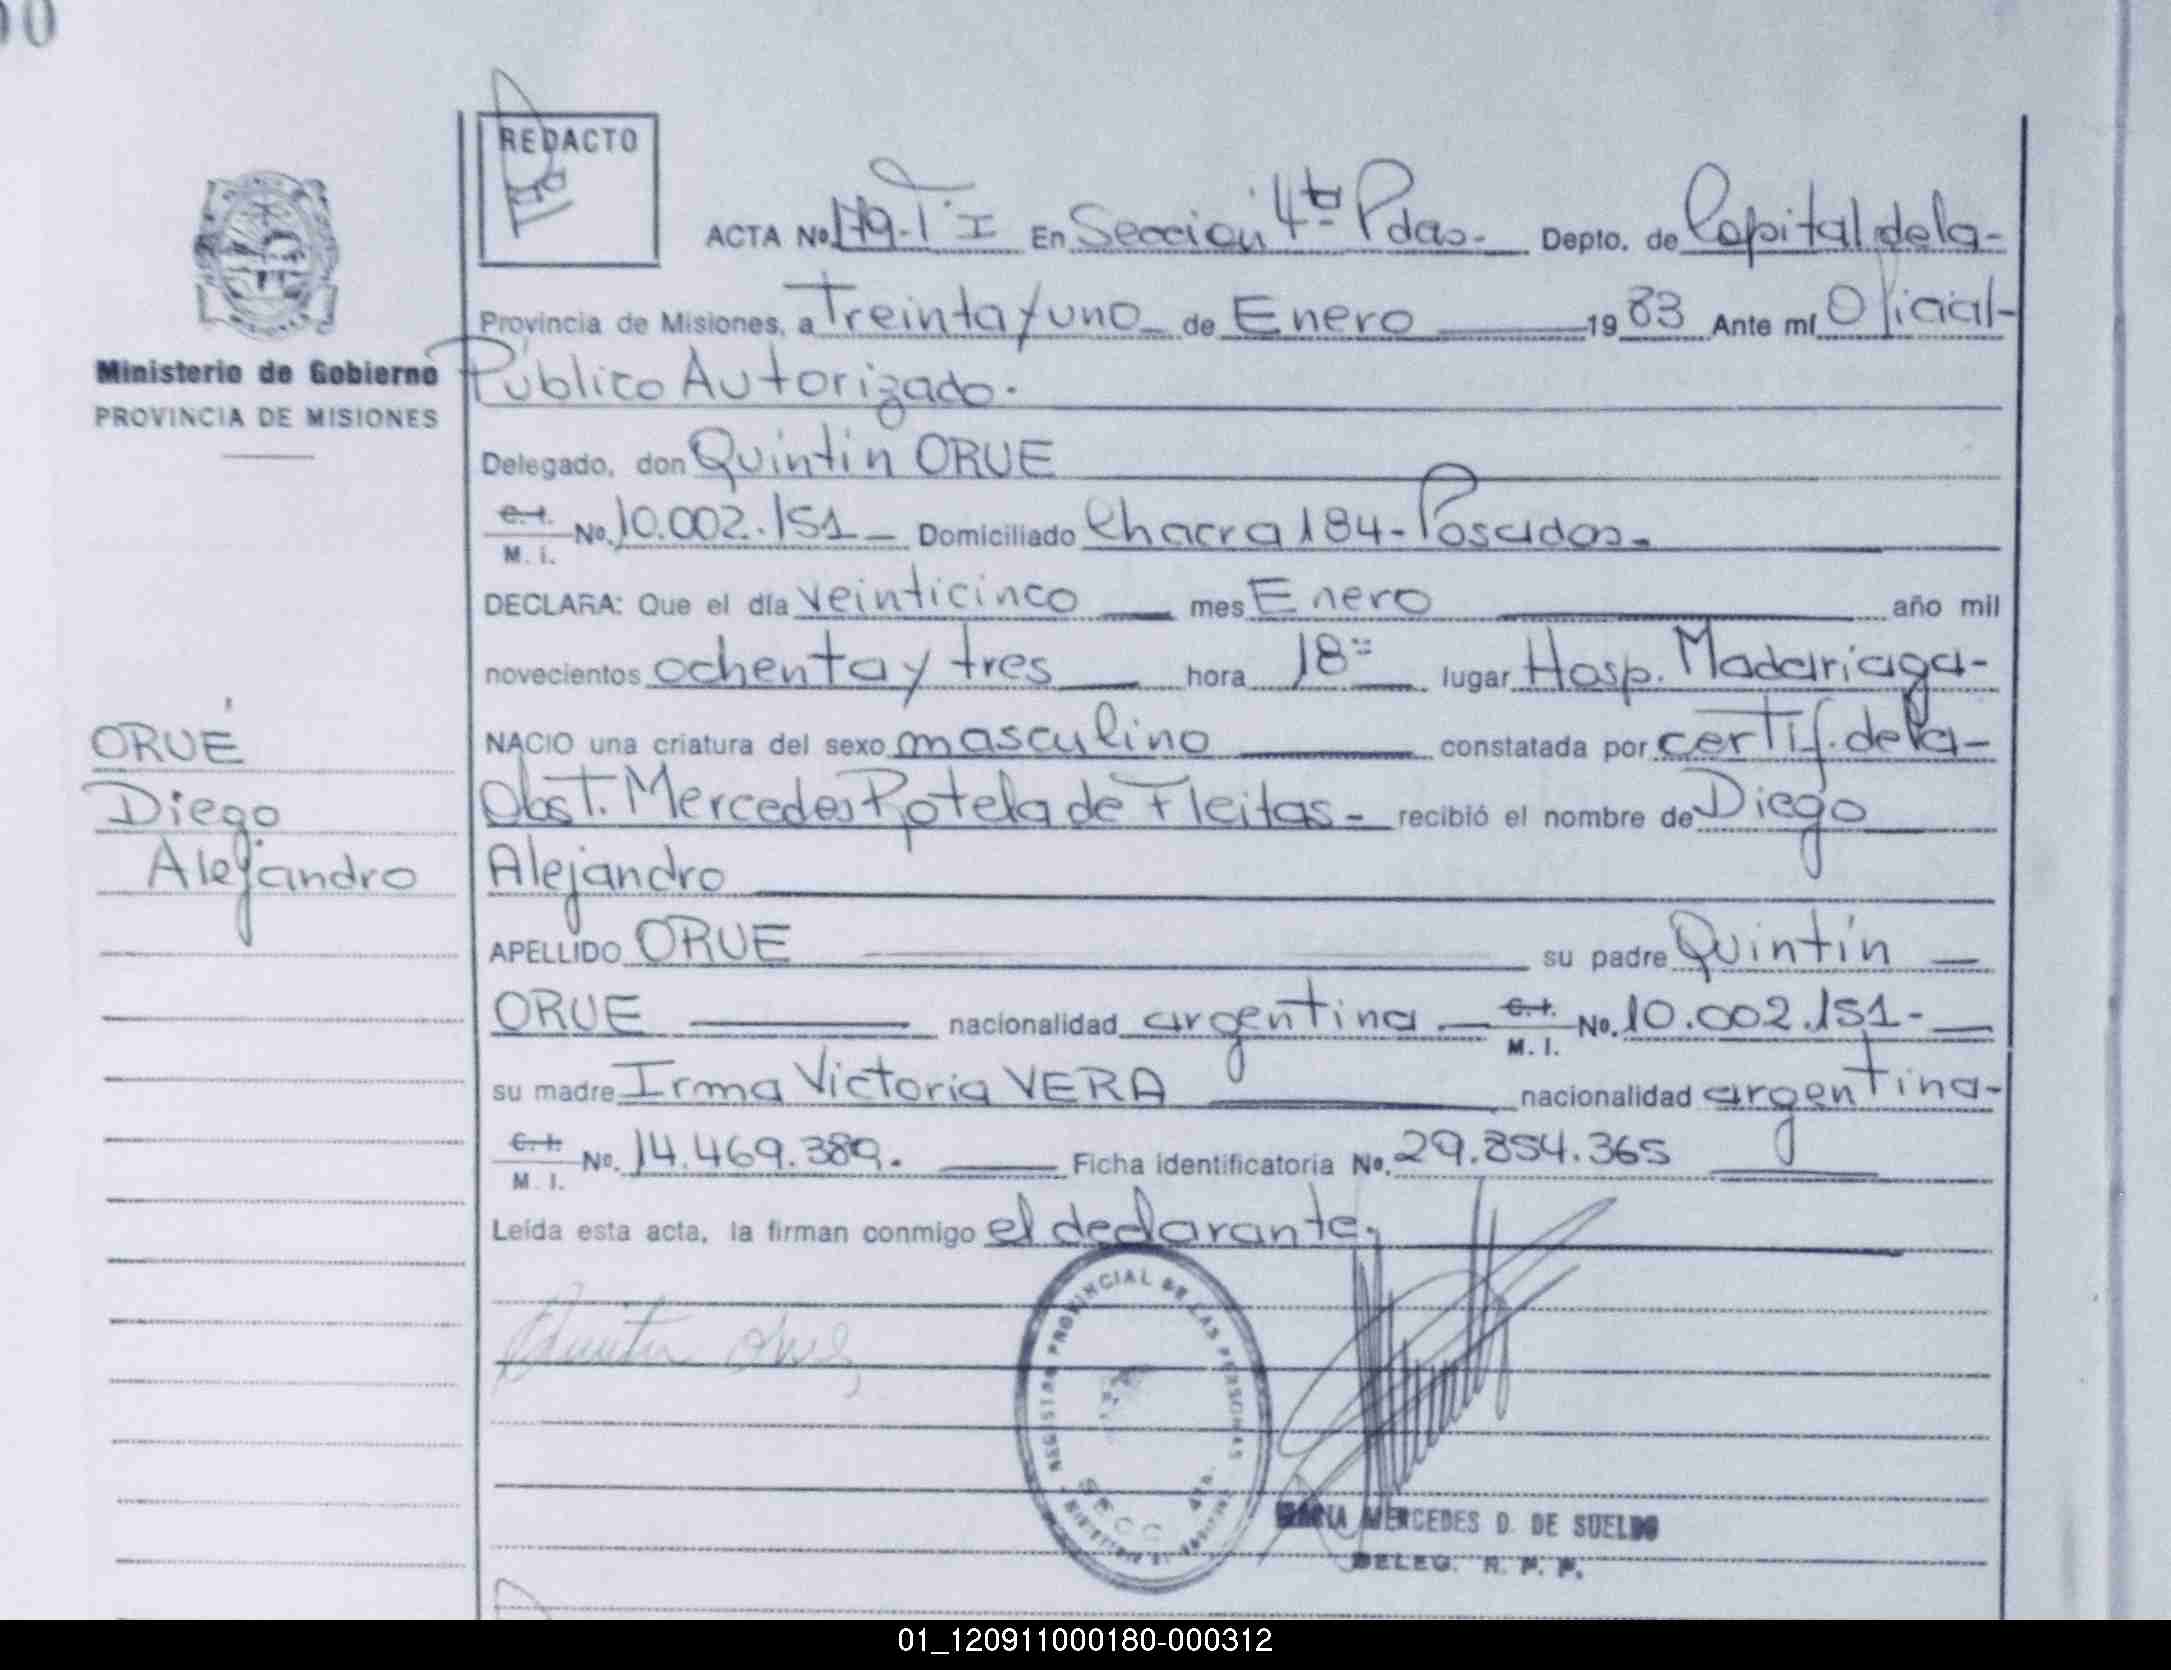 00
REDACTO
ACTA No 179-T° I En Sección 4ta Pdas. Depto. de Capital de la-
Provincia de Misiones, a Treinta y uno de Enero 1983 Ante mí Oficial-
Ministerio de Gobierno
PROVINCIA DE MISIONES
Público Autorizado.
Delegado, don Quintin ORUE
C.I. M. I. No. 10.002.151 Domiciliado Chacra 184-Posadas.
DECLARA: Que el día veinticinco mes Enero año mil
novecientos ochenta y tres hora 18 lugar Hosp. Madariaga-
NACIO una criatura del sexo masculino constatada por certif. de la-
Obst. Mercedes Rotela de Fleitas- recibió el nombre de Diego
Alejandro
ORUÉ
Diego
Alejandro
APELLIDO ORUE su padre Quintín
ORUE nacionalidad argentina C.I. M. I. No. 10.002.151-
su madre Irma Victoria VERA nacionalidad argentina-
C.I. M. I. No. 14.469.389. Ficha identificatoria No. 29.854.365
Leída esta acta, la firman conmigo el declarante.
Quintin Orué
REGISTRO PROVINCIAL DE LAS PERSONAS
SECC 4ta.
MARIA MERCEDES D. DE SUELDO
DELEG. R. P. P.
01_120911000180-000312